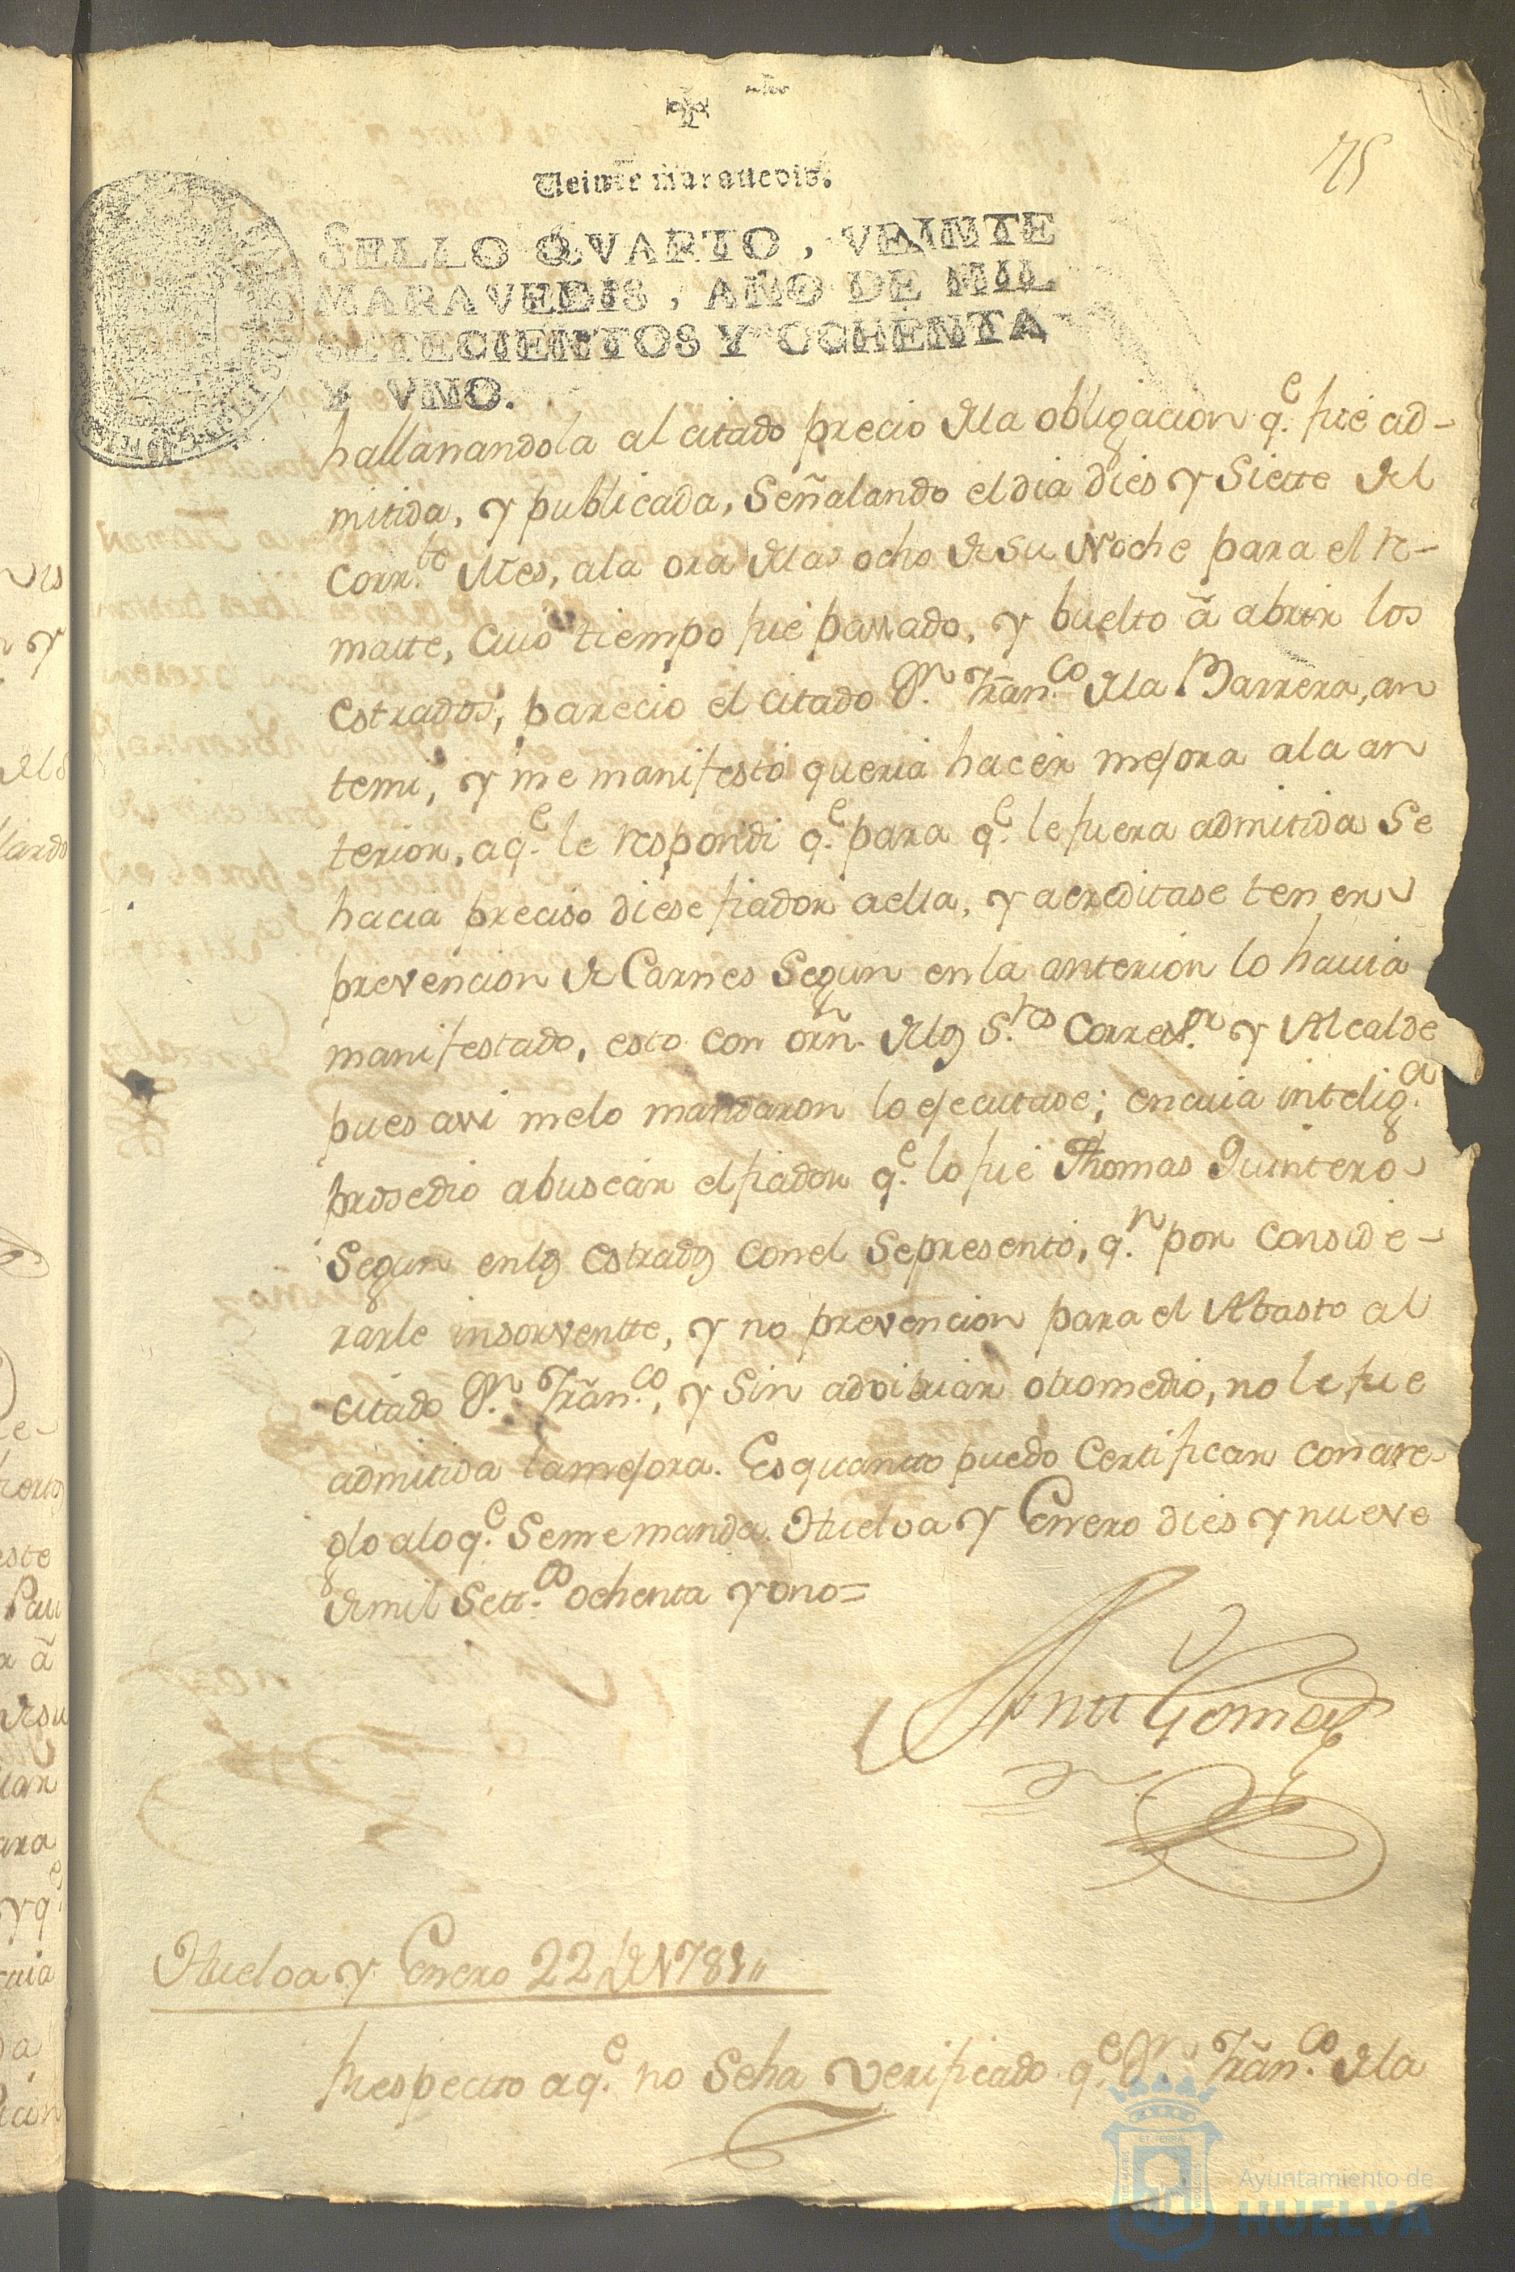 75
Veinte maravedis.
SELLO QVARTO, VEINTE
MARAVEDIS, AÑO DE MIL
SETECIENTOS Y OCHENTA
Y VNO.
hallanandola al citado precio dela obligacion q.e fué ad-
mitida, y publicada, Señalando el dia dies y Siette del
Corr.te Mes, ala ora delas ocho de su Noche para el re-
matte, cuio tiempo fué passado, y buelto â abrir los
estrados, parecio el citado D.n Fran.co dela Barrera, an
temi, y me manifestó queria hacer mejora ala an
terior, aq.e le respondi q.e para q.e le fuera admitida Se
hacia preciso diese fiador aella, y acreditase tener
prevencion de Carnes Segun en la anterior lo havia
manifestado, esto con orn. delos S.res Correg.or y Alcalde
pues assi melo mandaron lo ejecutase; encuia intelig.a
prosedio abuscar el fiador q.e lo fué Thomas Quintero
Segun enlos Estrados conel Sepresentó, q.n por conside-
rarle insorventte, y no prevencion para el Abasto al
citado D.n Fran.co, y Sin advitriar otromedio, no le fue
admitida lamejora. Es quantto puedo Certificar con are-
glo alo q.e Seme manda. Huelva y Enero dies y nueve
demil Sett.co ochenta y ono=
Antt Gomez
Huelva y Enero 22 de 1781,,
Respectto aq.e no Seha verificado q.e D.n Fran.co dela
Ayuntamiento de
HUELVA